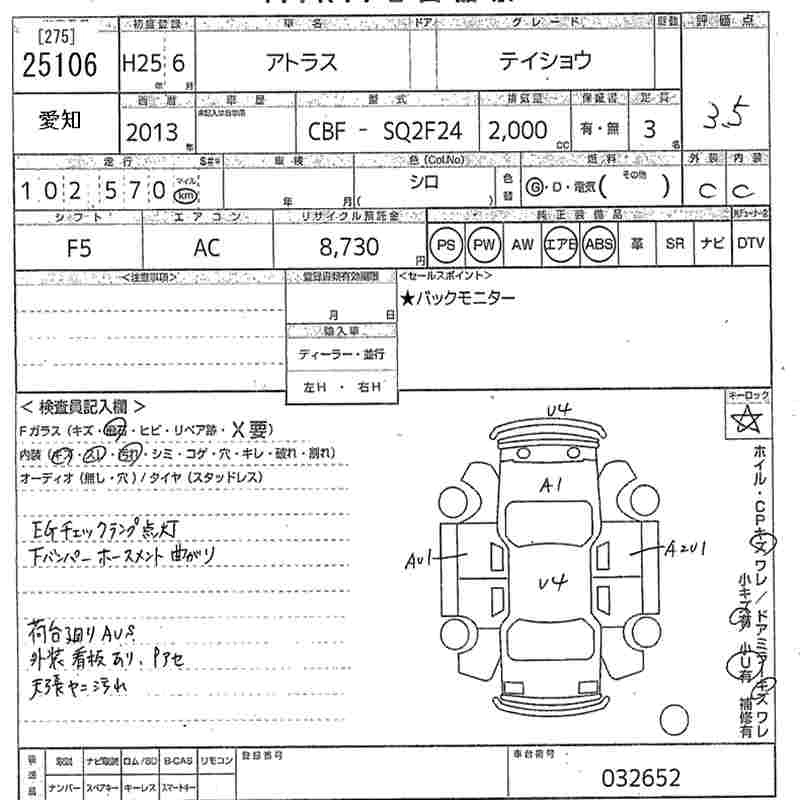 [275]
25106
初度登録 車名 ドア グレード 評価点
H25 6 アトラス テイショウ
年 月
愛知
西暦 車歴 型式 排気量 保証書 定員 3.5
2013 年 CBF - SQ2F24 2,000 CC 有・無 3 名
走行 車検 色(Col.No) 色替 燃料 外装 内装
102570 マイル km 年 月 シロ ( ) G・D・電気( その他 ) C C
シフト エアコン リサイクル預託金 純正装備品
F5 AC 8,730 円 PS PW AW エアB ABS 革 SR ナビ DTV
<注意事項> 登録書類有効期限 <セールスポイント>
月 日 ★バックモニター
輸入車
ディーラー・並行
左H ・ 右H
<検査員記入欄> キーロック
Fガラス(キズ・飛石・ヒビ・リペア跡・X要)
内装(キズ・スレ・汚れ・シミ・コゲ・穴・キレ・破れ・割れ)
オーディオ(無し・穴)/タイヤ(スタッドレス)
EGチェックランプ点灯
Fバンパー ホースメント 曲がり
荷台廻りAUS
外装看板あり、Pアセ
天張ヤニ汚れ
U4
A1
AU1 U4 A2U1
ホイル・CPキズワレ/ドアミラーキズワレ
小キズ有 小U有 補修有
装備品 取説 ナビ取説 ロム/SD B-CAS リモコン 登録番号 車台番号
ナンバー スペアキー キーレス スマートキー 032652